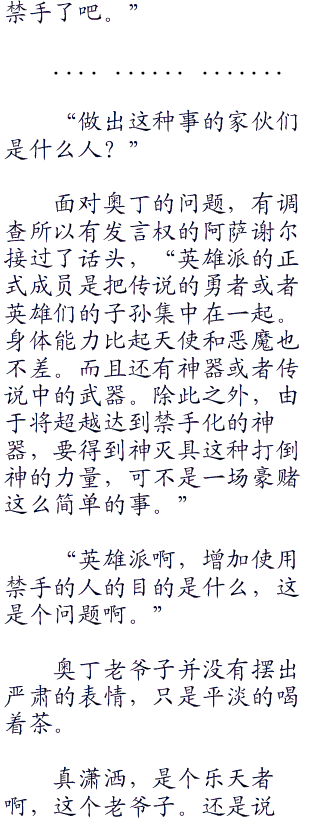 禁手了吧。”
．．．． ．．．．．． ．．．．．．．
“做出这种事的家伙们
是什么人？”
面对奥丁的问题，有调
查所以有发言权的阿萨谢尔
接过了话头，“英雄派的正
式成员是把传说的勇者或者
英雄们的子孙集中在一起。
身体能力比起天使和恶魔也
不差。而且还有神器或者传
说中的武器。除此之外，由
于将超越达到禁手化的神
器，要得到神灭具这种打倒
神的力量，可不是一场豪赌
这么简单的事。”
“英雄派啊，增加使用
禁手的人的目的是什么，这
是个问题啊。”
奥丁老爷子并没有摆出
严肃的表情，只是平淡的喝
着茶。
真潇洒，是个乐天者
啊，这个老爷子。还是说